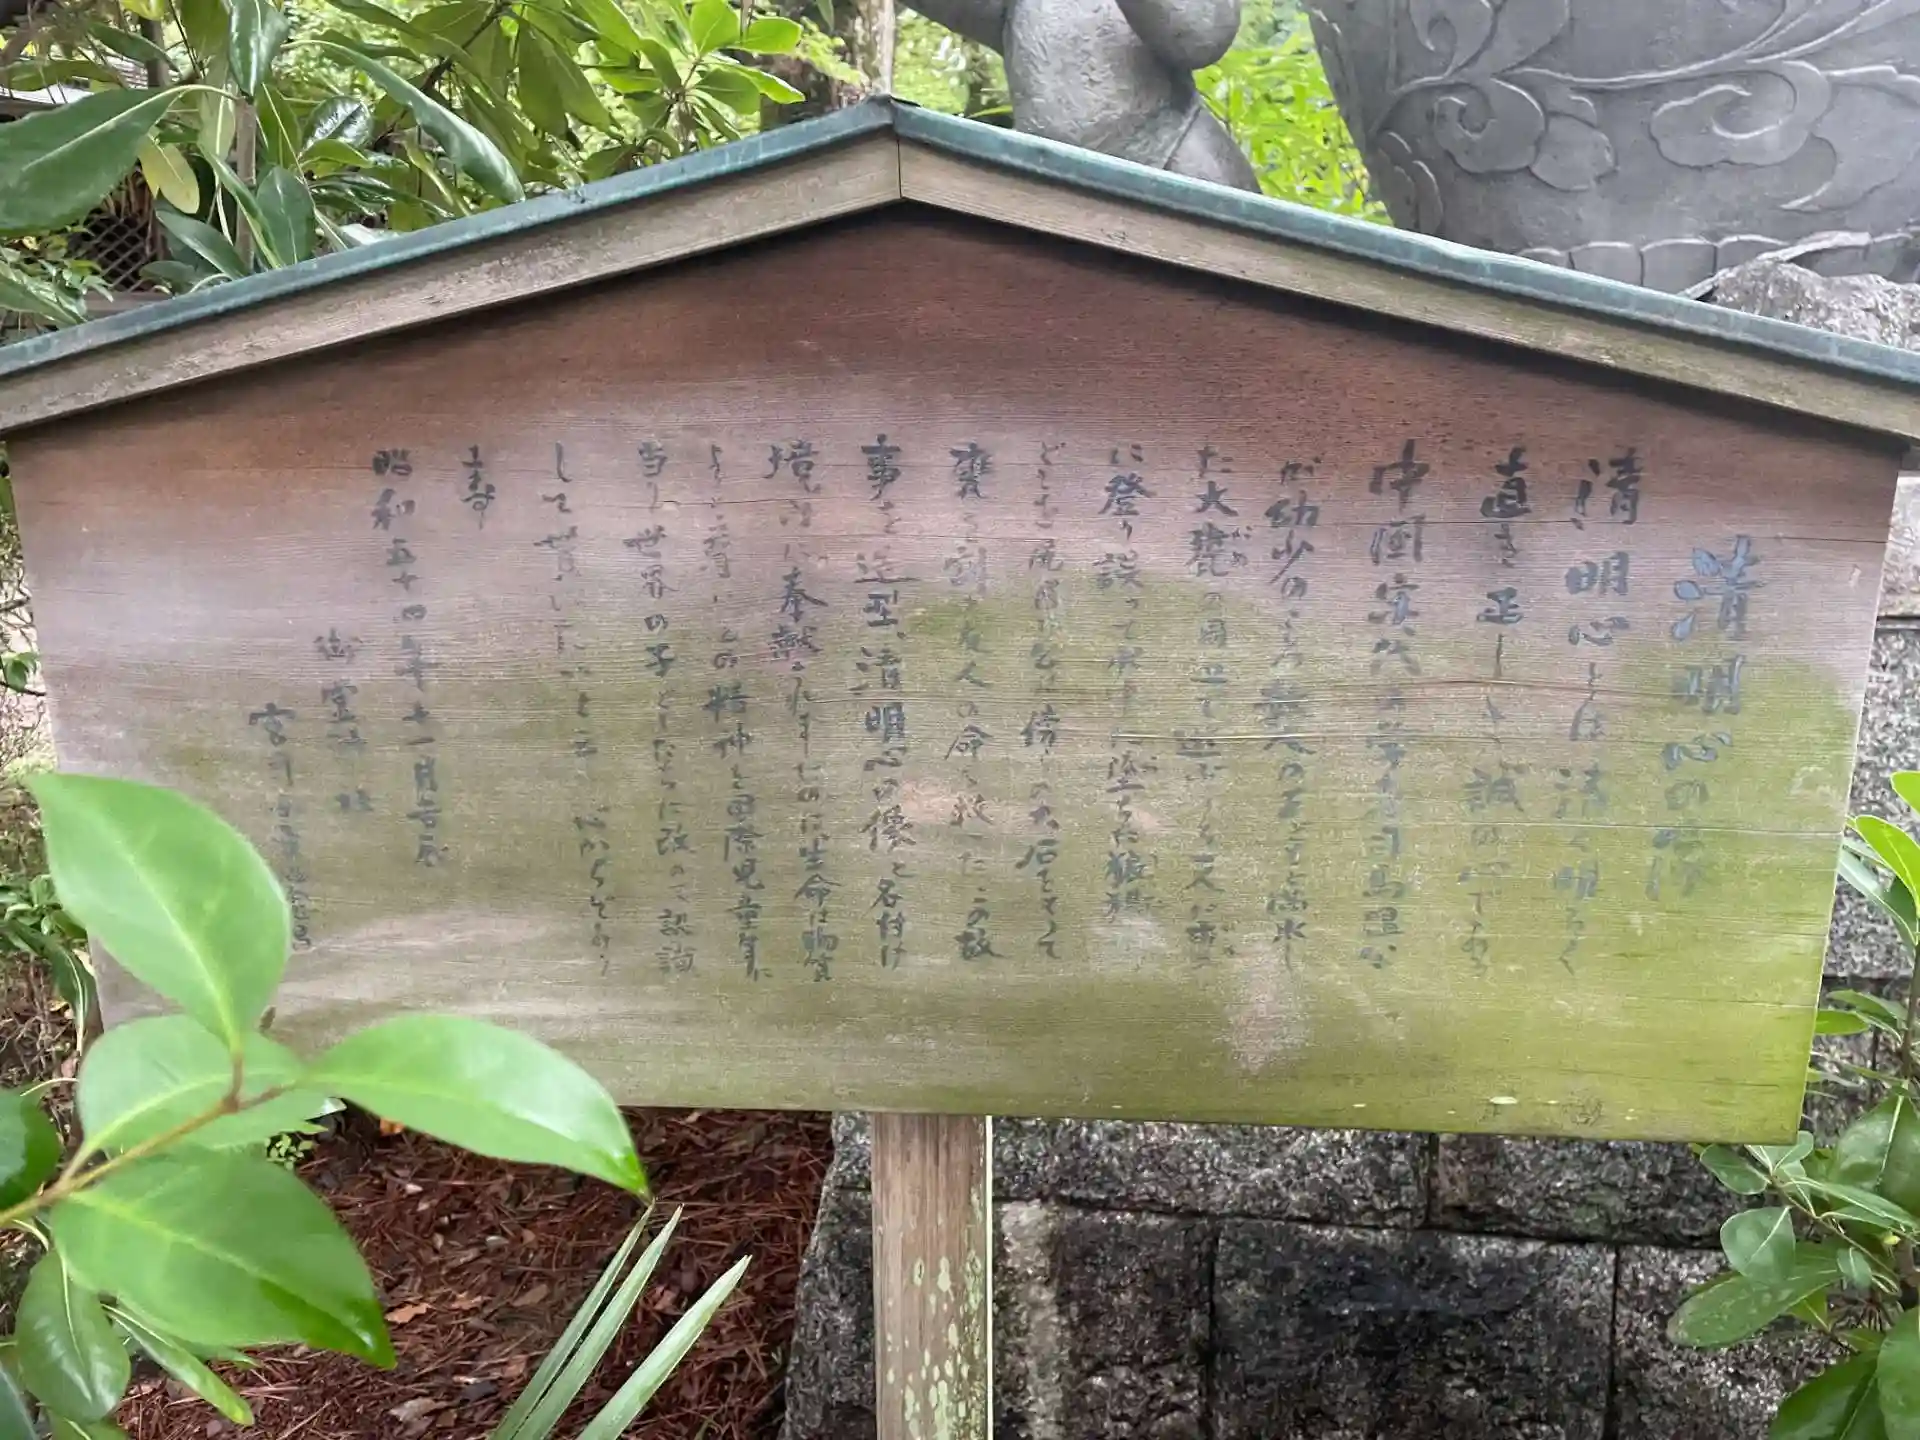 清明心の像
清明心とは清く明るく
直き正しき誠の心である
中国宋代の学者司馬温公
が幼少のころ数人の友と満水し
た大甕の周辺で遊ぶうち
に登り誤って水中に墜ちた
傍らの大石をもって
甕を割り友人の命を救ったこの故
事を造型、清明心の像と名付け
境内に奉献されましたのは生命は物質
よりも尊いとの精神を国際児童年に
当り世界の子どもたちに改めて認識
して貰いたいと云う心からであり
ます
昭和五十四年十一月吉辰
御霊神社
宮司